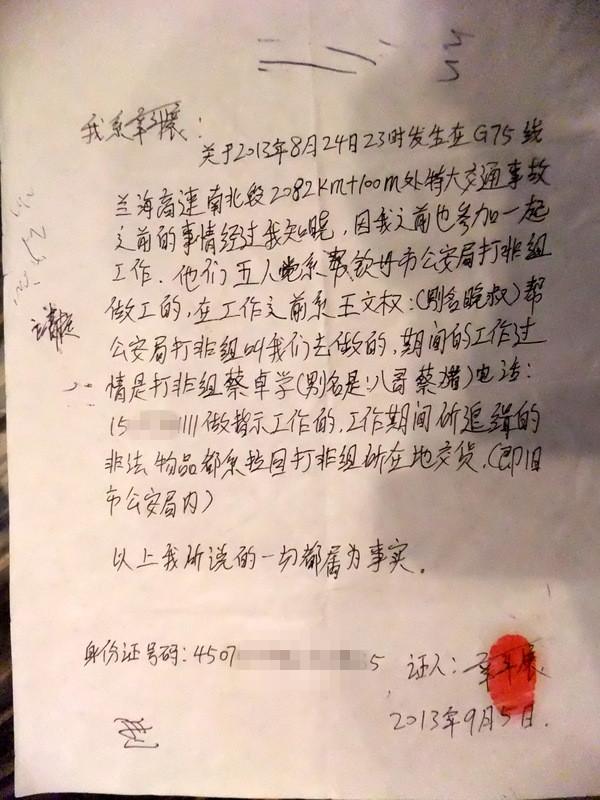 我系
关于2013年8月24日23时发生在G75线
兰海高速南北段2082km+100m处特大交通事故
之前的事情经过我知晓,因我之前也参加一起
工作.他们五人系帮钦州市公安局打非组
做工的,在工作之前系王文权:(别名晚叔)帮
公安局打非组叫我们去做的,期间的工作过
情是打非组蔡卓学(别名是:八哥 蔡猪)电话:
15 1111做指示工作的,工作期间所追缉的
非法物品都系拉回打非组所在地交货,(即旧
市公安局内)
以上我所说的一切都属为事实。
身份证号码:4507 5
证人:
2013年9月5日.